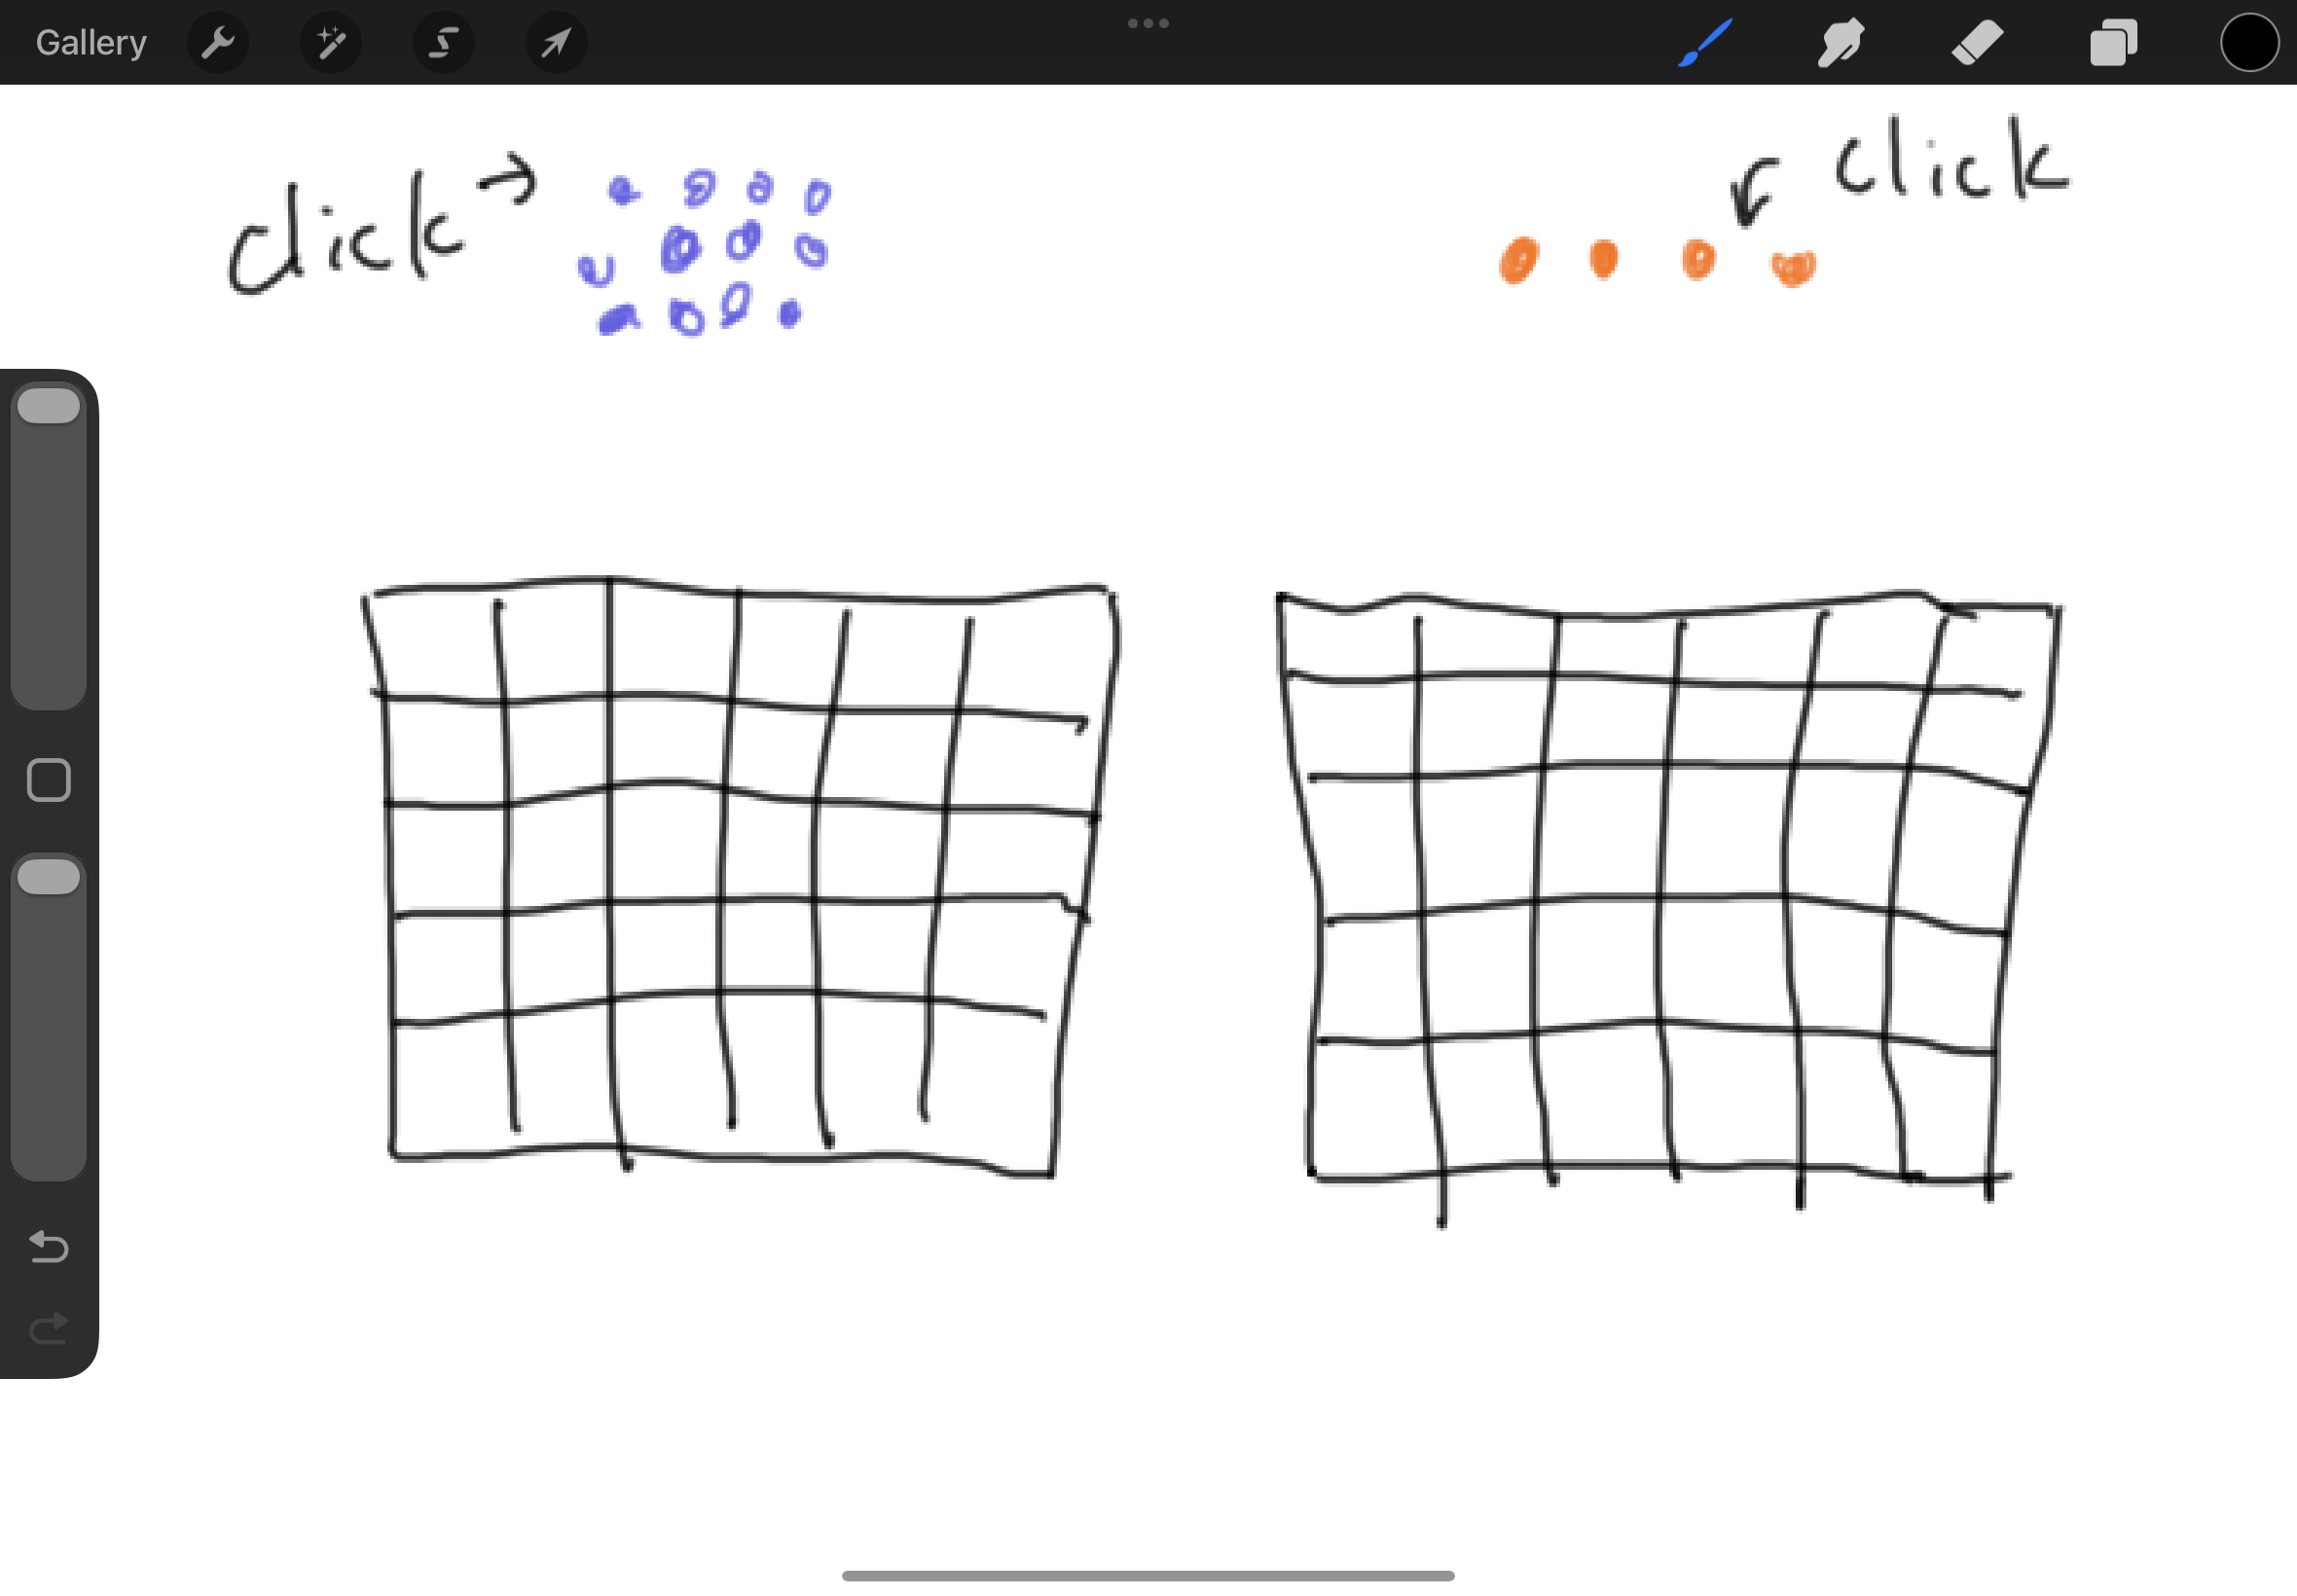 Gallery
click
click